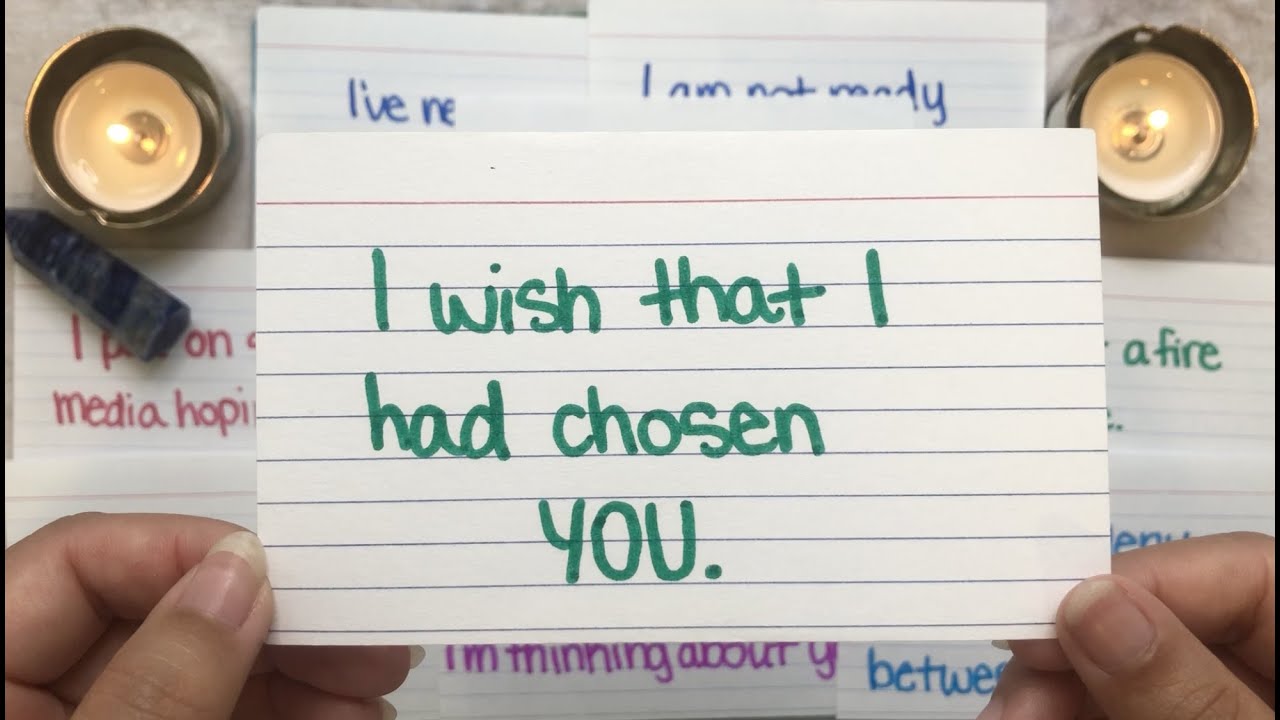 live ne
I am not ready
I wish that I
had chosen
YOU.
I p on
media hopi
a fire
I'm thinking about y
betwe